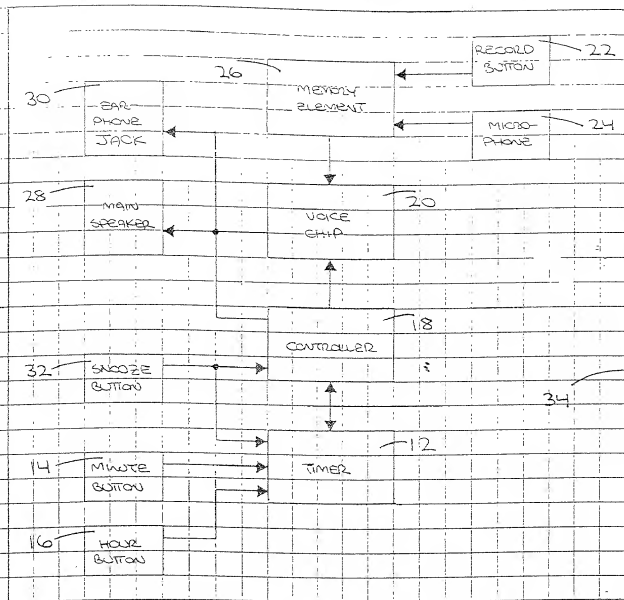 RECORD
BUTTON
22
26
MEMORY
ELEMENT
30
EAR-
PHONE
JACK
MICRO-
PHONE
24
28
MAIN
SPEAKER
VOICE
CHIP
20
18
CONTROLLER
32
SNOOZE
BUTTON
34
12
14
MINUTE
BUTTON
TIMER
16
HOUR
BUTTON